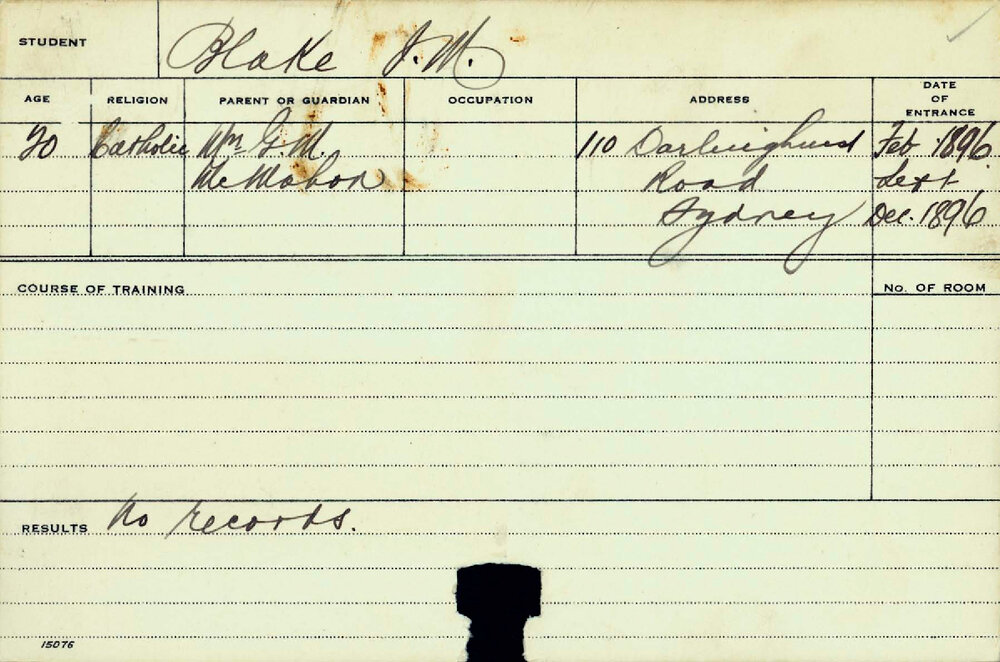 STUDENT Blake J. M.
AGE RELIGION PARENT OR GUARDIAN OCCUPATION ADDRESS DATE OF ENTRANCE
20 Catholic Wm G. M. 110 Darlinghurst Feb. 1896.
McMahon Road Left
Sydney Dec. 1896
COURSE OF TRAINING No. OF ROOM
RESULTS No records.
15076